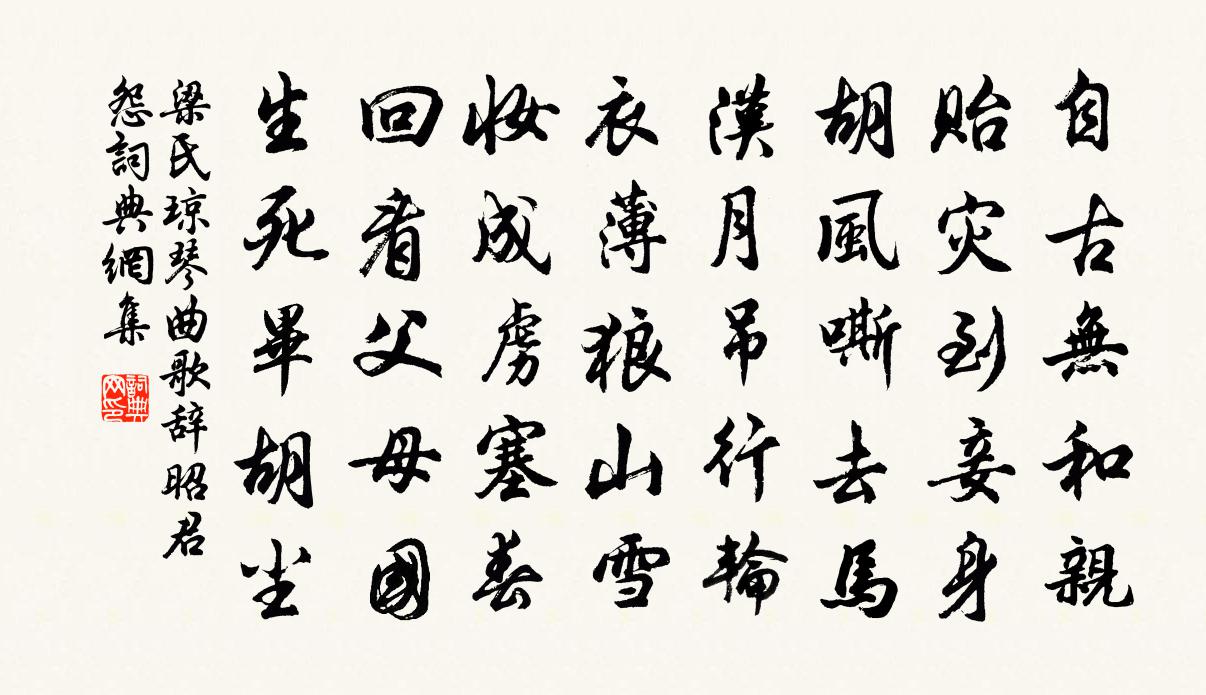 自古無和親
貽灾到妾身
胡風嘶去馬
漢月吊行輪
衣薄狼山雪
妝成虜塞春
回看父母國
生死畢胡尘
梁氏琼琴曲歌辞昭君
怨詞典網集
詞典网印